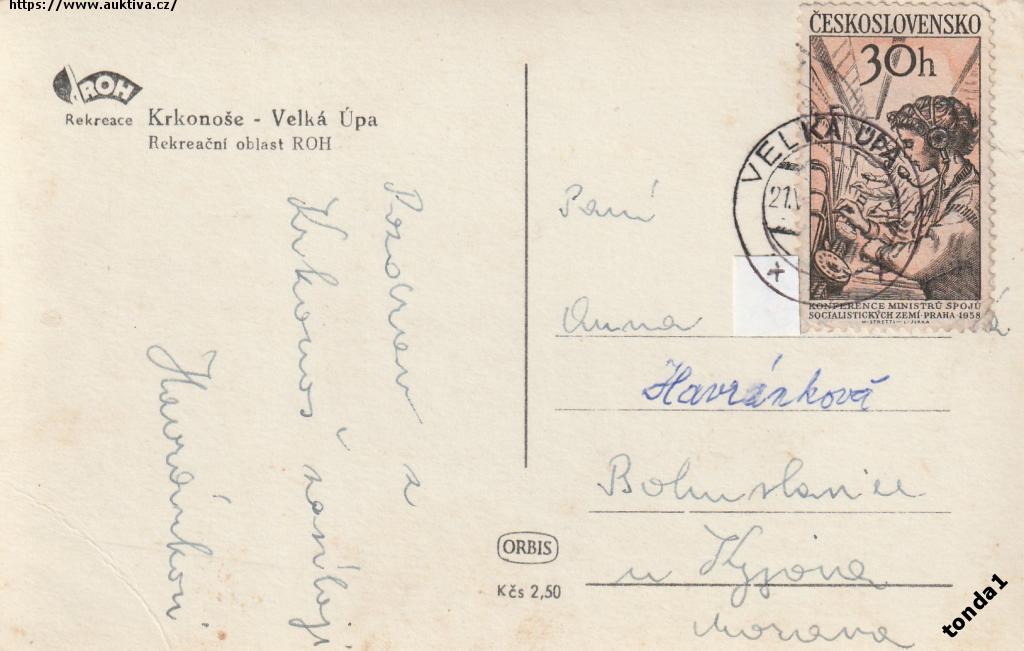 https://www.auktiva.cz/
ROH
Rekreace
Krkonoše - Velká Úpa
Rekreační oblast ROH
Pozdrav z
Krkonoš
zasílají
Havránkovi
ČESKOSLOVENSKO
30h
KONFERENCE MINISTRŮ SPOJŮ
SOCIALISTICKÝCH ZEMÍ·PRAHA 1958
VELKÁ ÚPA
21.V
Paní
Anna
Havránková
Bohuslavice
u Kyjova
Morava
ORBIS
Kčs 2,50
tonda1